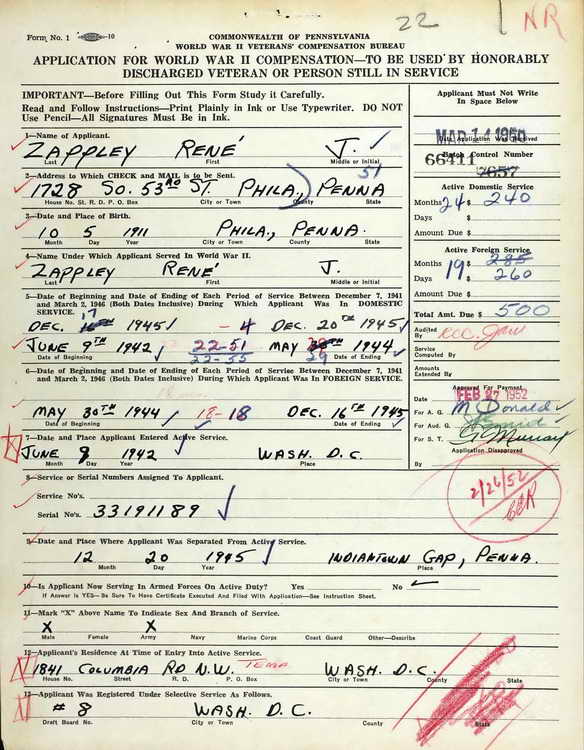 22
NR
Form No. 1
COMMONWEALTH OF PENNSYLVANIA
WORLD WAR II VETERANS' COMPENSATION BUREAU
APPLICATION FOR WORLD WAR II COMPENSATION—TO BE USED BY HONORABLY
DISCHARGED VETERAN OR PERSON STILL IN SERVICE
IMPORTANT—Before Filling Out This Form Study it Carefully.
Read and Follow Instructions—Print Plainly in Ink or Use Typewriter. DO NOT
Use Pencil—All Signatures Must be in Ink.
1—Name of Applicant.
ZAPPLEY RENÉ J.
Last First Middle or Initial
2—Address to Which CHECK and MAIL is to be Sent.
51
1728 SO. 53RD ST. PHILA., PENNA
House No. St. R. D. P. O. Box City or Town County State
3—Date and Place of Birth.
10 5 1911 PHILA., PENNA.
Month Day Year City or Town County State
4—Name Under Which Applicant Served In World War II.
ZAPPLEY RENÉ J.
Last First Middle or Initial
5—Date of Beginning and Date of Ending of Each Period of Service Between December 7, 1941
and March 2, 1946 (Both Dates Inclusive) During Which Applicant Was In DOMESTIC
SERVICE.
17
DEC. 1945 - 4 DEC. 20TH 1945
JUNE 9TH 1942 22-51 MAY 1944
22-55 29
Date of Beginning Date of Ending
6—Date of Beginning and Date of Ending of Each Period of Service Between December 7, 1941
and March 2, 1946 (Both Dates Inclusive) During Which Applicant Was In FOREIGN SERVICE.
MAY 30TH 1944 18-18 DEC. 16TH 1945
Date of Beginning Date of Ending
7—Date and Place Applicant Entered Active Service.
JUNE 9 1942 WASH. D.C.
Month Day Year Place
Applicant Must Not Write
In Space Below
MAR 14 1950
Date Application Was Received
Batch Control Number
66411
2057
Active Domestic Service
Months 24 $ 240
Days $
Amount Due $
Active Foreign Service
Months $ 285
19
Days $ 260
Amount Due $
Total Amt. Due $ 500
Audited
By
Service
Computed By
Amounts
Extended By
Approved For Payment
Date FEB 27 1952
For A. G. McDonald
For Aud. G.
For S. T. G Murray
Application Disapproved
By
2/26/52
8—Service or Serial Numbers Assigned To Applicant.
Service No's.
Serial No's. 33191189
9—Date and Place Where Applicant Was Separated From Active Service.
12 20 1945 INDIANTOWN GAP, PENNA.
Month Day Year Place
10—Is Applicant Now Serving In Armed Forces On Active Duty? Yes No
If Answer Is YES—Be Sure To Have Certificate Executed And Filed With Application—See Instruction Sheet.
11—Mark "X" Above Name To Indicate Sex And Branch of Service.
X X
Male Female Army Navy Marine Corps Coast Guard Other—Describe
12—Applicant's Residence At Time of Entry Into Active Service.
1841 COLUMBIA RD N.W. TEMP. WASH. D.C.
House No. Street R. D. P. O. Box City or Town County State
13—Applicant Was Registered Under Selective Service As Follows.
# 8 WASH. D.C.
Draft Board No. City or Town County State